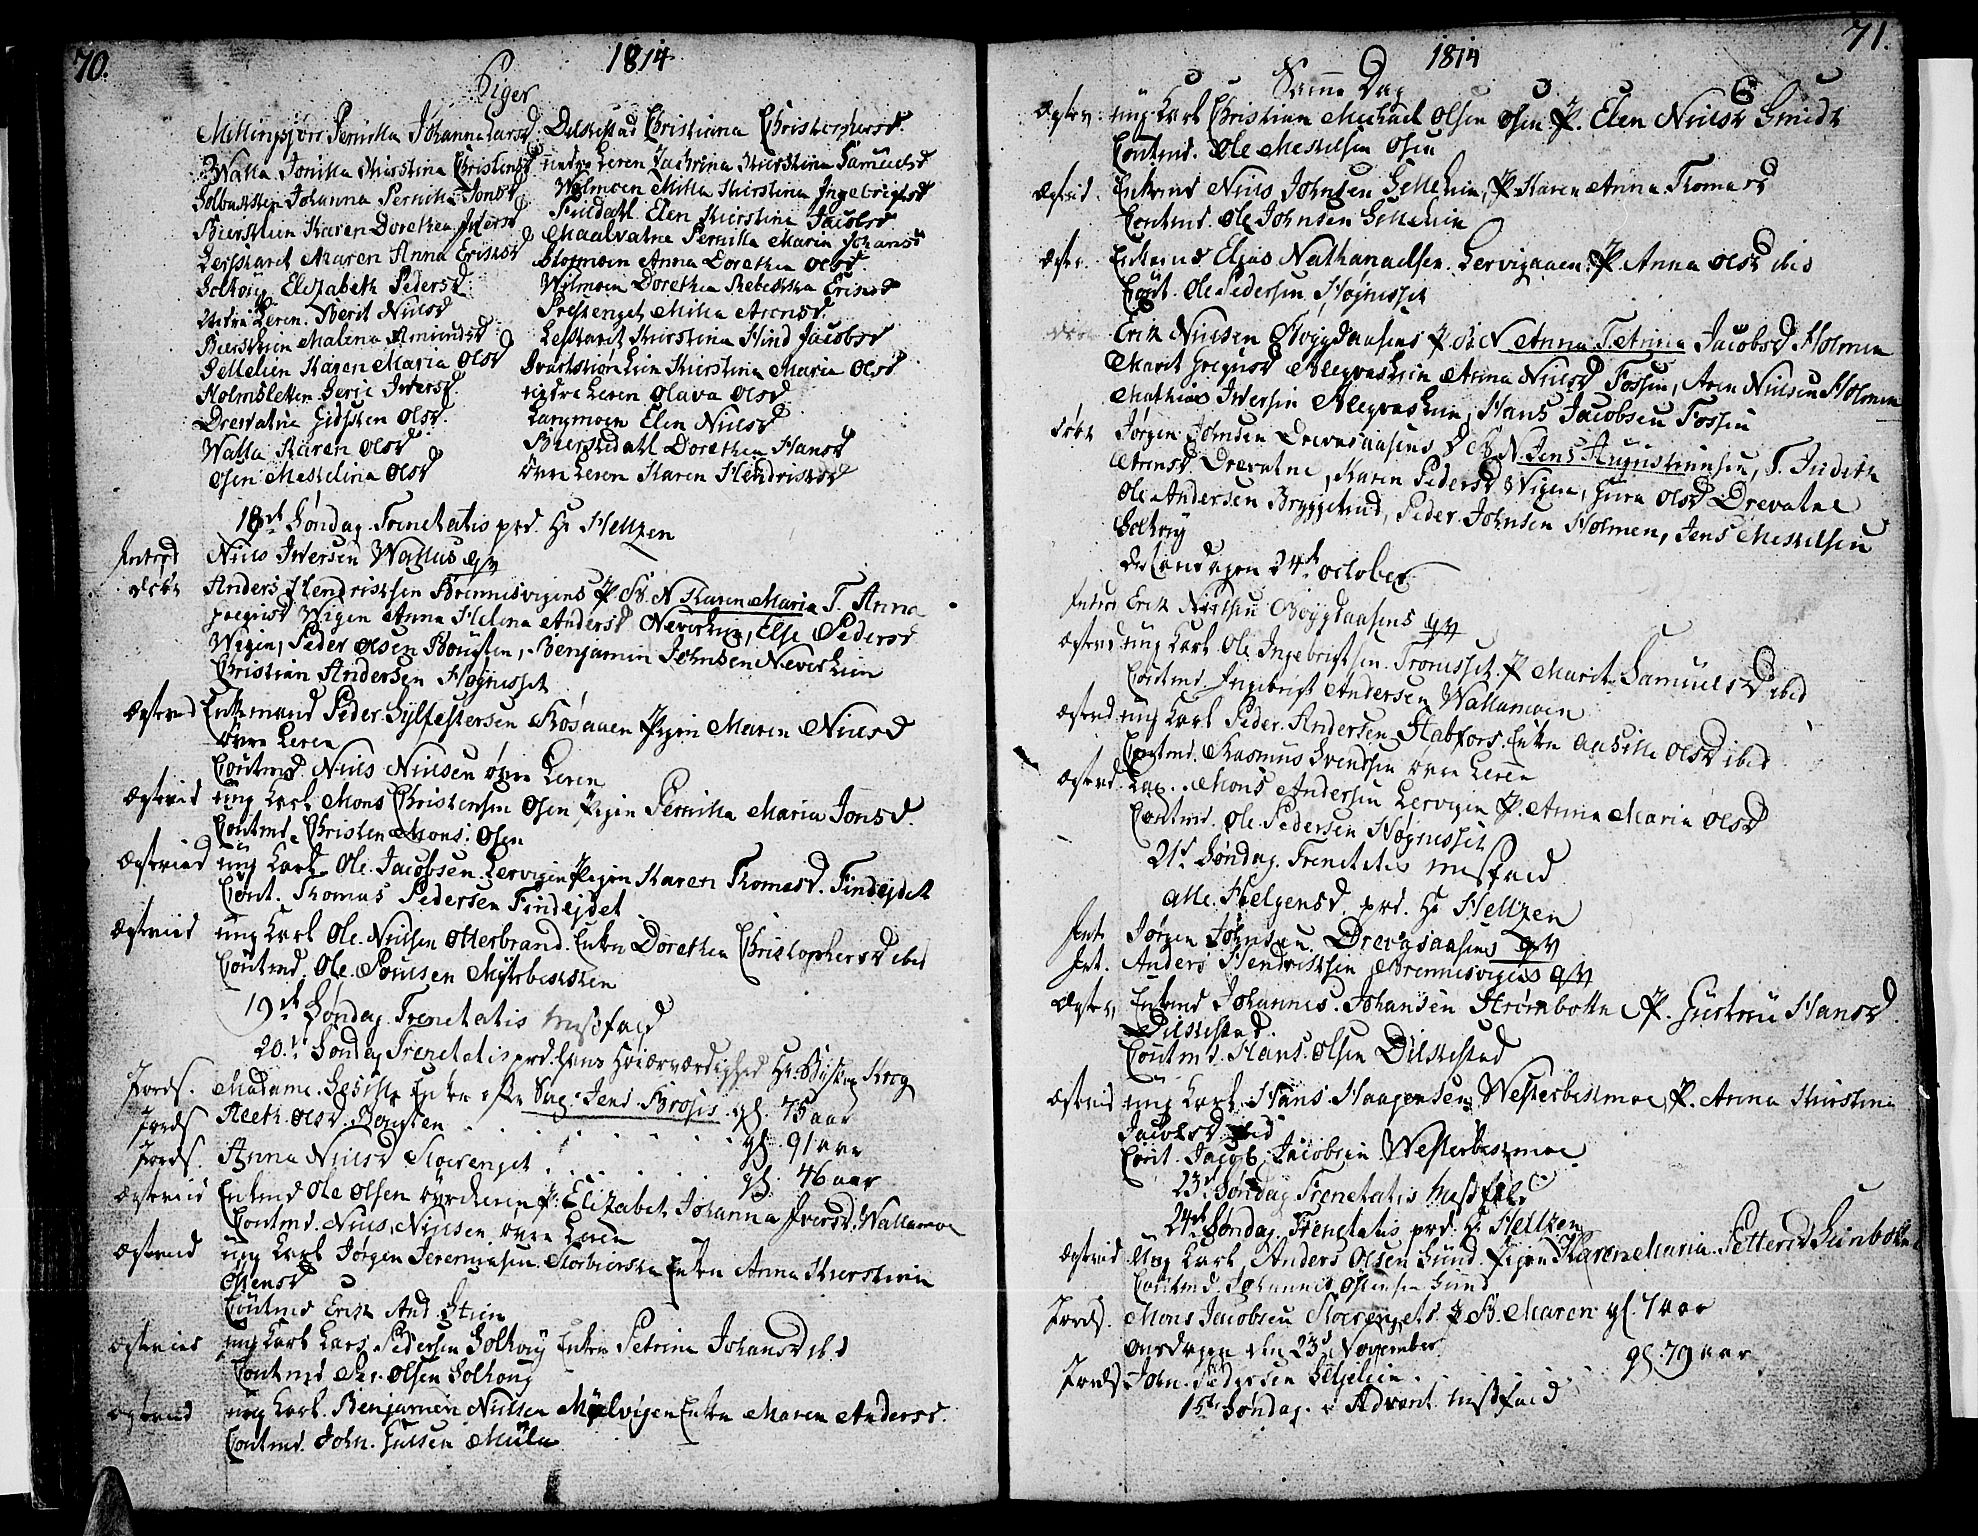 70.
1814
Piger
Millingsjorr Pernilla Johanna Larsd.
Walla Jonilla Kirstina Christensd
Solbakken Johanna Pernilla Jonsd
Biersklien Karen Dorethea Iversd
Lesskaret Maren Anna Eriksd
Soltvig Elizabeth Pedersd
Nedre Leren Berit Nielsd
Biersklien Malena Amundsd
Sellelien Karen Maria Olsd
Holmsletten Berje Iversd.
Drevatne Gidsken Olsd.
Walla Karen Olsd
Osen Meskelina Olsd
Dilkestad Christiana Christophersd.
nedre Leren Zachrina Kirstina Samuelsd
Wilmoen Milla Kirstina Ingebrigtsd
Fieldahl Elen Kirstina Jacobsd
Maalvatne Pernilla Maria Johansd
Slosmoen Anna Dorethea Olsd
Wilmoen Dorethea Rebekka Eriksd
Prestenget Milla Arensd.
Lesskaret Kirstina Hind Jacobsd
Svartskiønlien Kirstina Maria Olsd
nedre Leren Olava Olsd
Langmoen Elen Nielsd
Bierskdahl Dorethea Hansd
øvre Leren Karen Hendriksd
18de Søndag Trenetatis prd. Hr Heltzen
Introd Niels Iversen Wallas qv
døbt Anders Hendriksen Brennesvigens P B. N. Karen Maria T. Anna
Wigen Anna Helena Andersd Neverlien, Else Pedersd
Wigen, Peder Olsen Bougten, Benjamin Johnsen Neverlien
Christian Andersen Høgnesset
Egteved Enkemand Peder Sylfestersen Røsaaen Pigen Maren Nielsd
øvre Leren
Coutmd. Niels Nielsen øvre Leren
Egteved ung Karl Mons Christensen Osen Pigen Pernilla Maria Jonsd.
Coutmd. Christen Mons: Osen
Egteved ung Karl Ole Jacobsen Lervigen Pigen Karen Thomasd. Findejdet
Cout. Thomas Pedersen Findejdet
Egteved ung Karl Ole Nielsen Otterbrand Enken Dorethea Christophersd ibd
Coutmd. Ole Poulsen Myrbekken
19de Søndag Trenetatis Messefald
20de Søndag Trenetatis prd. Hans Høiærværdighed Hr. Biskop Krog
Jords. Madame Enke efter Sag. Jens Brosis gl. 75 aar
Jords Aleth Olsd. Bougten gl. 91 aar
Jords. Anna Nielsd Storenget gl. 46 aar
Egteved Enkemd Ole Olsen øvre Leren P. Elizabet Johanna Iversd. Wallamoe
Coutmd. Niels Nielsen øvre Leren
Egteved ung Karl Jørgen Jeremiasen Storbierska Enken Anna Kirstina
Ottensd
Coutmd Erik And. Stien
Egteved ung Karl Lars Pedersen Soltvig Enken Petrina Johansd ibd
Coutmd Per. Olsen Soltvig
Egteved ung Karl. Benjamin Nielsen Mølvigen Enken Maren Andersd.
Coutmd. John. Mula
71.
1814
Samme Dag
Egtev: ung Karl Christian Michael Olsen Osen P. Elen Nielsd Smidt
Coutmd. Ole Meskelsen Osen
Egteved. Enkemd Niels Johnsen Sellelien, P. Karen Anna Thomasd
Coutmd. Ole Johnsen Sellelien
Egtev. Enkemd Elias Nathanaelsen Lervigaaen P Anna Olsd ibid
Cout. Ole Pedersen Høgnesset
døbt Erik Nielsen Stoygdaasens P. B. N Anna Tetrina Jacobsd Holmen
Marit Alegvaslien Anna Nielsd Fossen, Aren Nielsen Holmen
Mathias Iversen Alegvaslien, Hans Jacobsen Fossen
døbt Jørgen Johnsen Drevasaasens D B N. Jens Augustinusen, T. Judith
Arensd Drevatne, Karen Pedersd Wigen, Gura Olsd Drevatne
Ole Andersen Bryggetrud, Peder Johnsen Holmen, Jens Meskelsen
Soltvig
24de October
Introd Erik Nielsen Boygdaasens qv
Egteved ung Karl Ole Ingebrigtsen Fronesset P Marit Samuelsd ibid
Coutmd Ingebrigt Andersen Wallamoen
Egteved ung Karl Peder Andersen Stabfors Enken Olsd ibid
Coutmd. Rasmus Svendsen øvre Leren
Egteved Lap. Mons Andersen Lervigen P. Anna Maria Olsd
Coutmd. Ole Pedersen Høgnesset
21de Søndag Trenetatis Messefald
alle Helgensd prd. Hr Heltzen
Int. Jørgen Johnsen Drevasaasens qv
Int. Anders Hendriksen Brennesvigens qv
Egtev. Enkemd Johannes Johansen Strømbotn P. Gurtrue Hansd
Dilkestad.
Coutmd. Hans Olsen Dilkestad
Egteved ung Karl Hans Haagensen Westerbekmoe, P. Anna Kirstina
Jacobsd ibid
Cout. Jacob Jacobsen Westerbekmoe
23de Søndag Trenetatis Messefald
24de Søndag Trenetatis prd. Hr Heltzen
Egteved Ung Karl Anders Olsen Sund. Pigen Karen Maria Pettersd Leirbotn
Coutmd Johannes Sund
Jords. Mons Jacobsen Storengets P B. Maren gl. 7 aar
Onsdagen den 23de November
Jords John Pedersen Seljelien. gl. 79 aar
1ste Søndag i Advent Messefald